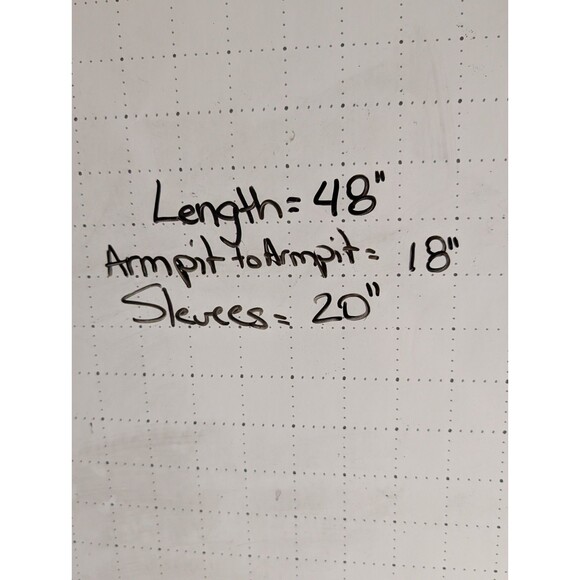 Length = 48"
Armpit to Armpit = 18"
Slevees = 20"